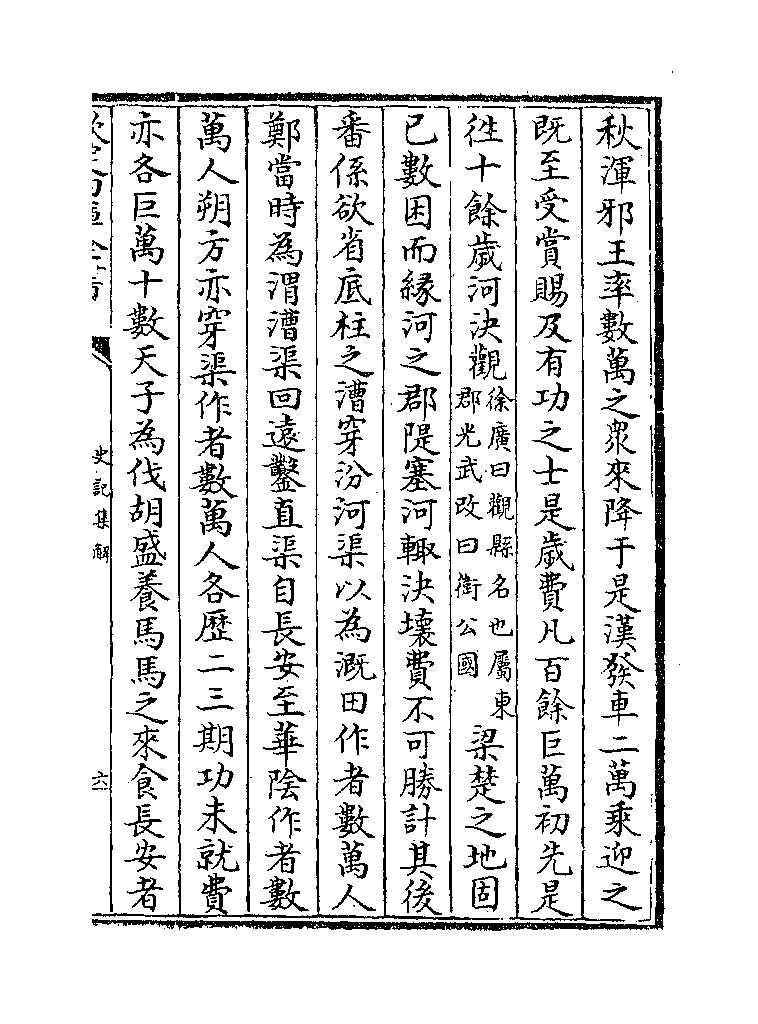 秋渾邪王率數萬之衆來降于是漢發車二萬乘迎之
既至受賞賜及有功之士是歲費凡百餘巨萬初先是
徃十餘歲河決觀徐廣曰觀縣名也屬東郡光武改曰衛公國梁楚之地固
已數困而縁河之郡隄塞河輙決壊費不可勝計其後
番係欲省底柱之漕穿汾河渠以為溉田作者數萬人
鄭當時為渭漕渠回遠鑿直渠自長安至華陰作者數
萬人朔方亦穿渠作者數萬人各歴二三期功未就費
亦各巨萬十數天子為伐胡盛養馬馬之來食長安者
史記集解
六